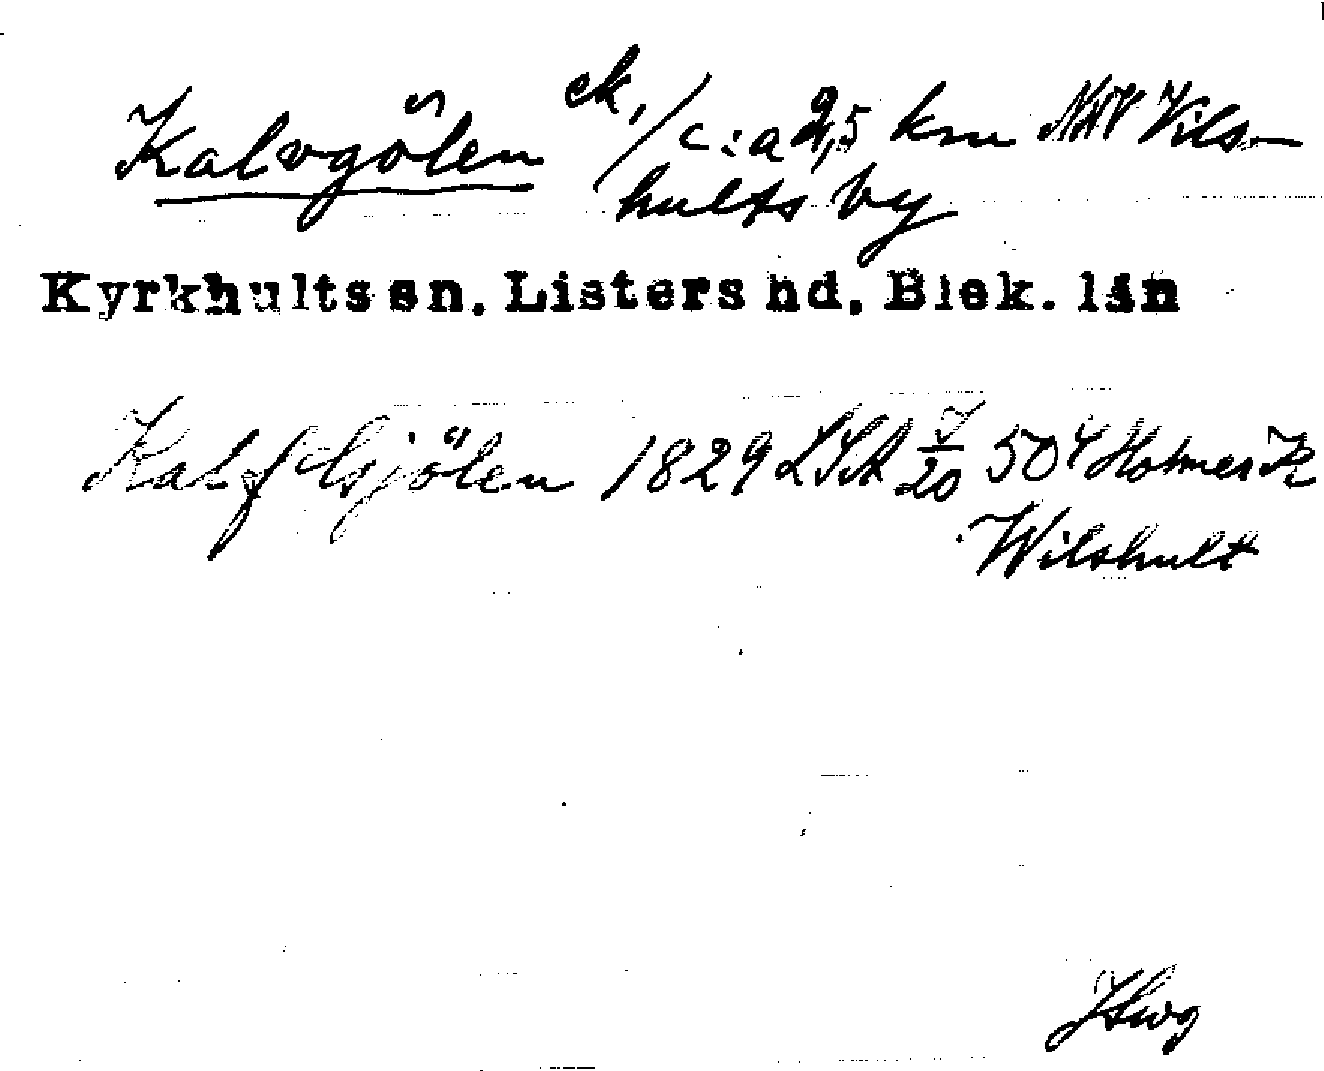 Kalvgölen ek./c:a 2,5 km NNV Vils-
hults by
Kyrkhults sn. Listers hd. Blek. län
Kalfelsjölen 1829 LSA J/20 50 4 Holmer K
Wilshult